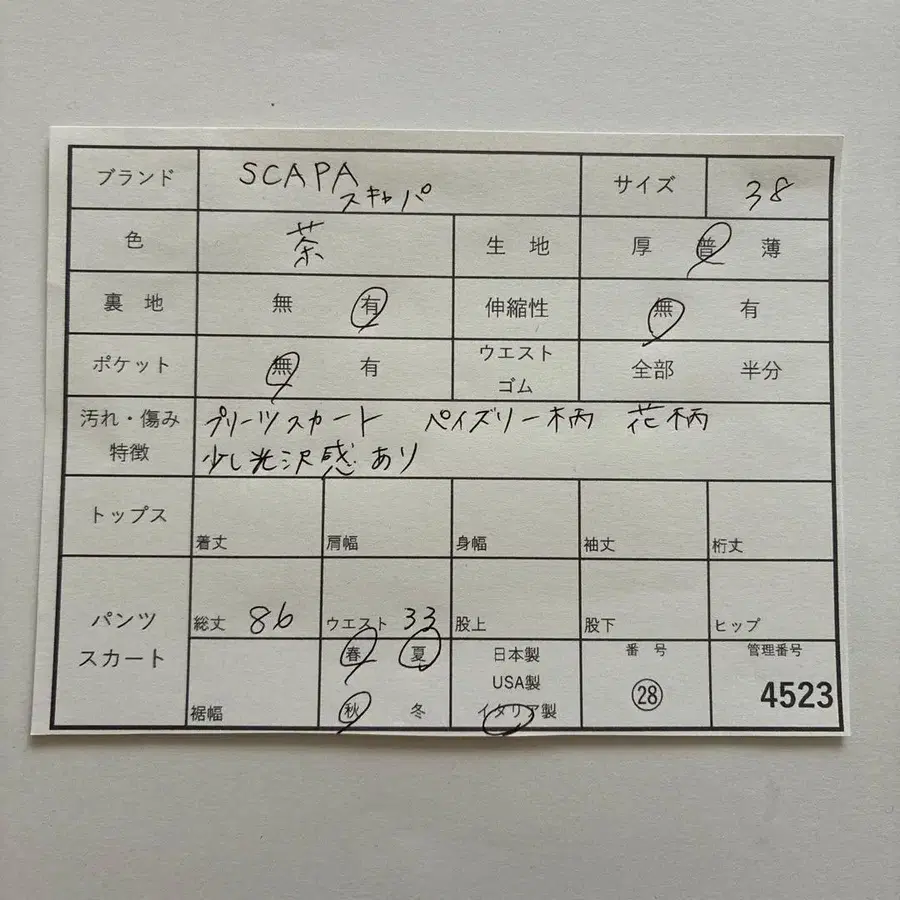 ブランド SCAPA スキャパ サイズ 38
色 茶 生地 厚 普 薄
裏地 無 有 伸縮性 無 有
ポケット 無 有 ウエストゴム 全部 半分
汚れ・傷み 特徴 プリーツスカート ペイズリー柄 花柄
少し光沢感あり
トップス 着丈 肩幅 身幅 袖丈 裄丈
パンツ スカート 総丈 86 ウエスト 33 股上 股下 ヒップ
裾幅 春 夏 秋 冬
日本製
USA製
イタリア製
番号 28
管理番号 4523